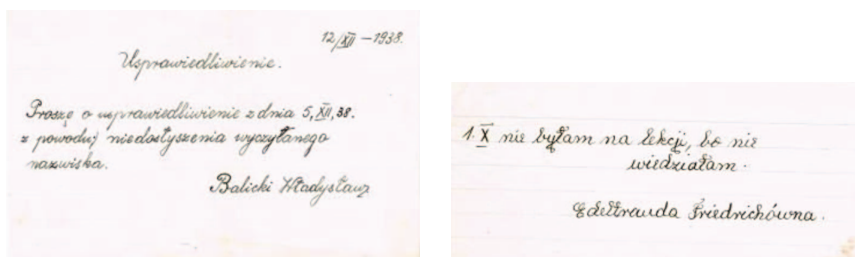 12/XII – 1938.
Usprawiedliwienie.
Proszę o usprawiedliwienie z dnia 5, XII, 38.
z powodu niedosłyszenia wyczytanego
nazwiska.
Balicki Władysław
1. X nie byłam na lekcji, bo nie
wiedziałam.
Edeltrauda Friedrichówna.